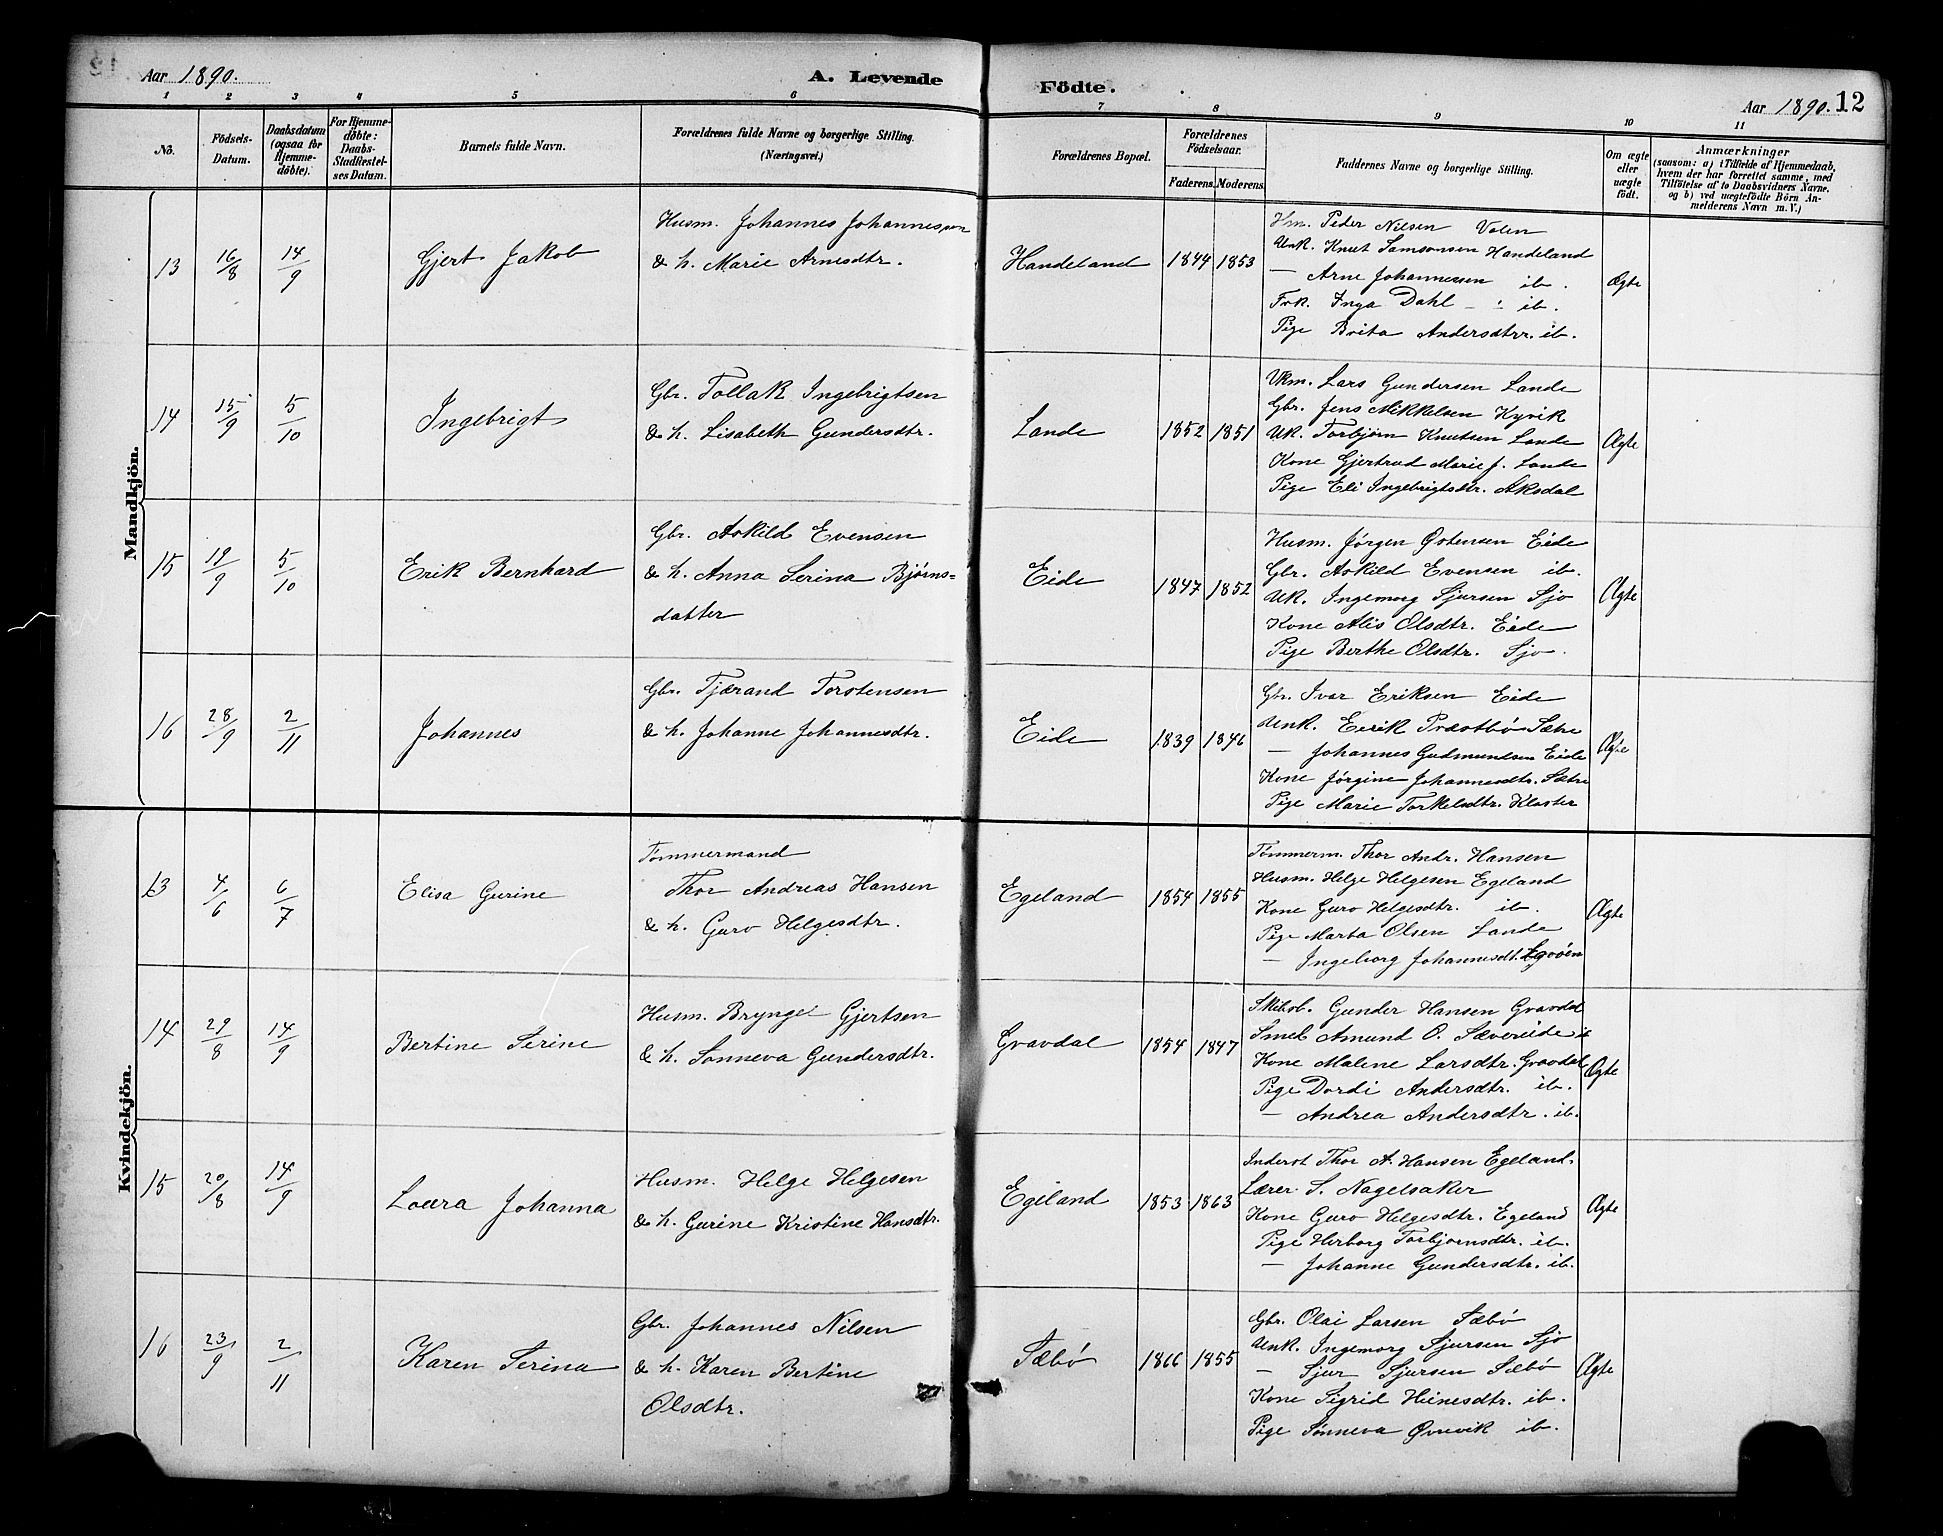 Aar 1890.
A. Levende
Födte.
Aar 1890. 12
1 2 3 4 5 6 7 8 9 10 11
No.
Födsels-
Datum.
Daabsdatum
(ogsaa for
Hjemme-
døbte).
For Hjemme-
døbte:
Daabs-
Stadfæstel-
ses Datum.
Barnets fulde Navn.
Forældrenes fulde Navne og borgerlige Stilling.
(Næringsvei.)
Forældrenes Bopæl.
Forældrenes
Födselsaar.
Faderens. Moderens.
Faddernes Navne og borgerlige Stilling.
Om ægte
eller
uægte
födt.
Anmærkninger
(saasom: a) i Tilfælde af Hjemmedaab,
hvem der har forrettet samme, med
Tilføielse af to Daabsvidners Navne,
og b) ved uægtefödte Börn An-
melderens Navn m. V.)
Mandkjön.
13 16/8 14/9 Gjert Jakob
Husm. Johannes Johannessen
& h. Marie Arnesdtr.
Handeland 1844 1853
Hm. Peder Nilsen Valen
Unk. Knut Samsonsen Handeland
— Arne Johannessen ib.
Frk. Inga Dahl — : ib.
Pige Brita Andersdtrr. ib.
Ægte
14 15/9 5/10 Ingebrigt
Gbr. Tollak Ingebrigtsen
& h. Lisabeth Gundersdtr.
Lande 1852 1851
Ukm. Lars Gundersen Lande
Gbr. Jens Mikkelsen Kyvik
Uk. Torbjørn Knutsen Lande
Kone Gjertrud Marie J. Lande
Pige Eli Ingebrigtsdtr. Aksdal
Ægte
15 19/9 5/10 Erik Bernhard
Gbr. Askild Evensen
& h. Anna Serina Bjørns=
datter
Eide 1847 1852
Husm. Jørgen Østensen Eide
Gbr. Askild Evensen ib.
Uk. Ingemorg Sjursen Sjo
Kone Alis Olsdtr. Eide
Pige Berthe Olsdtr. Sjo.
Ægte
16 28/9 2/11 Johannes
Gbr. Tjærand Torstensen
& h. Johanne Johannesdtr.
Eide 1839 1846
Gbr. Ivar Eriksen Eide
Unk. Eerik Præstbø Sætre
— Johannes Gudmundsen Eide
Kone Jørgine Johannesdtr. Sætre
Pige Marie Torkelsdtr. Kloster
Ægte
Kvindekjön.
13 4/6 6/7 Elisa Gurine
Tømmermand
Thor Andreas Hansen
& h. Guro Helgesdtr.
Egeland 1854 1855
Tømmerm. Thor Andr. Hansen
Husm. Helge Helgesen Egeland
Kone Guro Helgesdtr. ib.
Pige Marta Olsen Lande
— Ingeborg Johannesdt.
Ægte
14 29/8 14/9 Bertine Serine
Husm. Brynge Gjertsen
& h. Sønneva Gundersdtr.
Gravdal 1854 1847
Skibsb. Gunder Hansen Gravdal
Smed Amund O. Sæverude
Kone Malene Larsdtr. Gravdal
Pige Dordi Andersdtr. ib.
— Andrea Andersdtr. ib.
Ægte
15 20/8 14/9 Loura Johanna
Husm. Helge Helgesen
& h. Gurine Kristine Hansdtr.
Egeland 1853 1863
Inderst Thor A. Hansen Egeland.
Lærer S. Nagelsaker
Kone Guro Helgesdtr. Egeland
Pige Herborg Torbjornsdtr. ib.
— Johanne Gundersdtr. ib.
Ægte
16 23/9 2/11 Karen Serina
Gbr. Johannes Nilsen
& h. Karen Bertine
Olsdtr.
Sæbø 1866 1855
Gbr. Olai Larsen Sæbø
Unk. Ingemorg Sjursen Sjo
— Sjur Sjursen Sæbø
Kone Sigrid Heinesdtr. ib.
Pige Sønneva Øvrevik ib.
Ægte